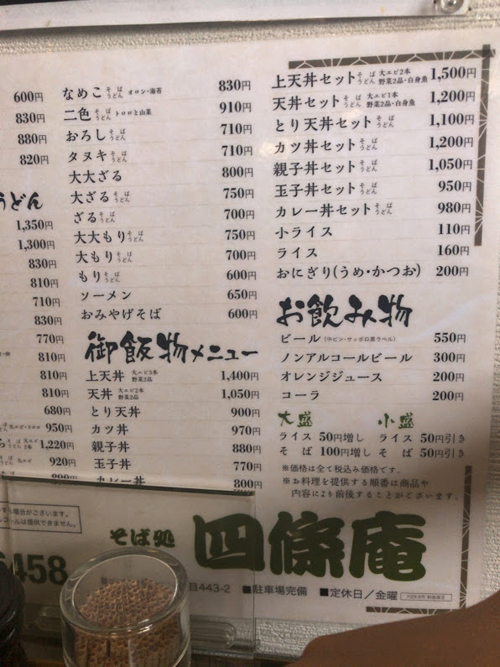 600円
830円
880円
820円
うどん
1,350円
1,300円
830円
810円
710円
830円
770円
810円
810円
680円
950円
1,220円
920円
なめこ そば うどん オロシ・海苔 830円
二色 そば うどん トロロと山菜 910円
おろし そば うどん 710円
タヌキ そば うどん 710円
大大ざる 800円
大ざる そば うどん 750円
ざる そば うどん 700円
大大もり そば うどん 750円
大もり そば うどん 700円
もり そば うどん 600円
ソーメン 650円
おみやげそば 600円
御飯物メニュー
上天丼 1,400円
天丼 大エビ2本 野菜2品 1,050円
とり天丼 900円
カツ丼 970円
親子丼 880円
玉子丼 770円
カレー丼 800円
上天丼セット そば うどん 大エビ2本 野菜2品・白身魚 1,500円
天丼セット そば うどん 大エビ1本 野菜2品・白身魚 1,200円
とり天丼セット そば うどん 1,100円
カツ丼セット そば うどん 1,200円
親子丼セット そば うどん 1,050円
玉子丼セット そば うどん 950円
カレー丼セット そば うどん 980円
小ライス 110円
ライス 160円
おにぎり(うめ・かつお) 200円
お飲み物
ビール (中ビン・サッポロ黒ラベル) 550円
ノンアルコールビール 300円
オレンジジュース 200円
コーラ 200円
大盛 小盛
ライス 50円増し ライス 50円引き
そば 100円増し そば 50円引き
※価格は全て税込み価格です。
※お料理を提供する順番は商品や
内容により前後することがございます。
そば処 四條庵
458
443-2 ■駐車場完備 ■定休日／金曜